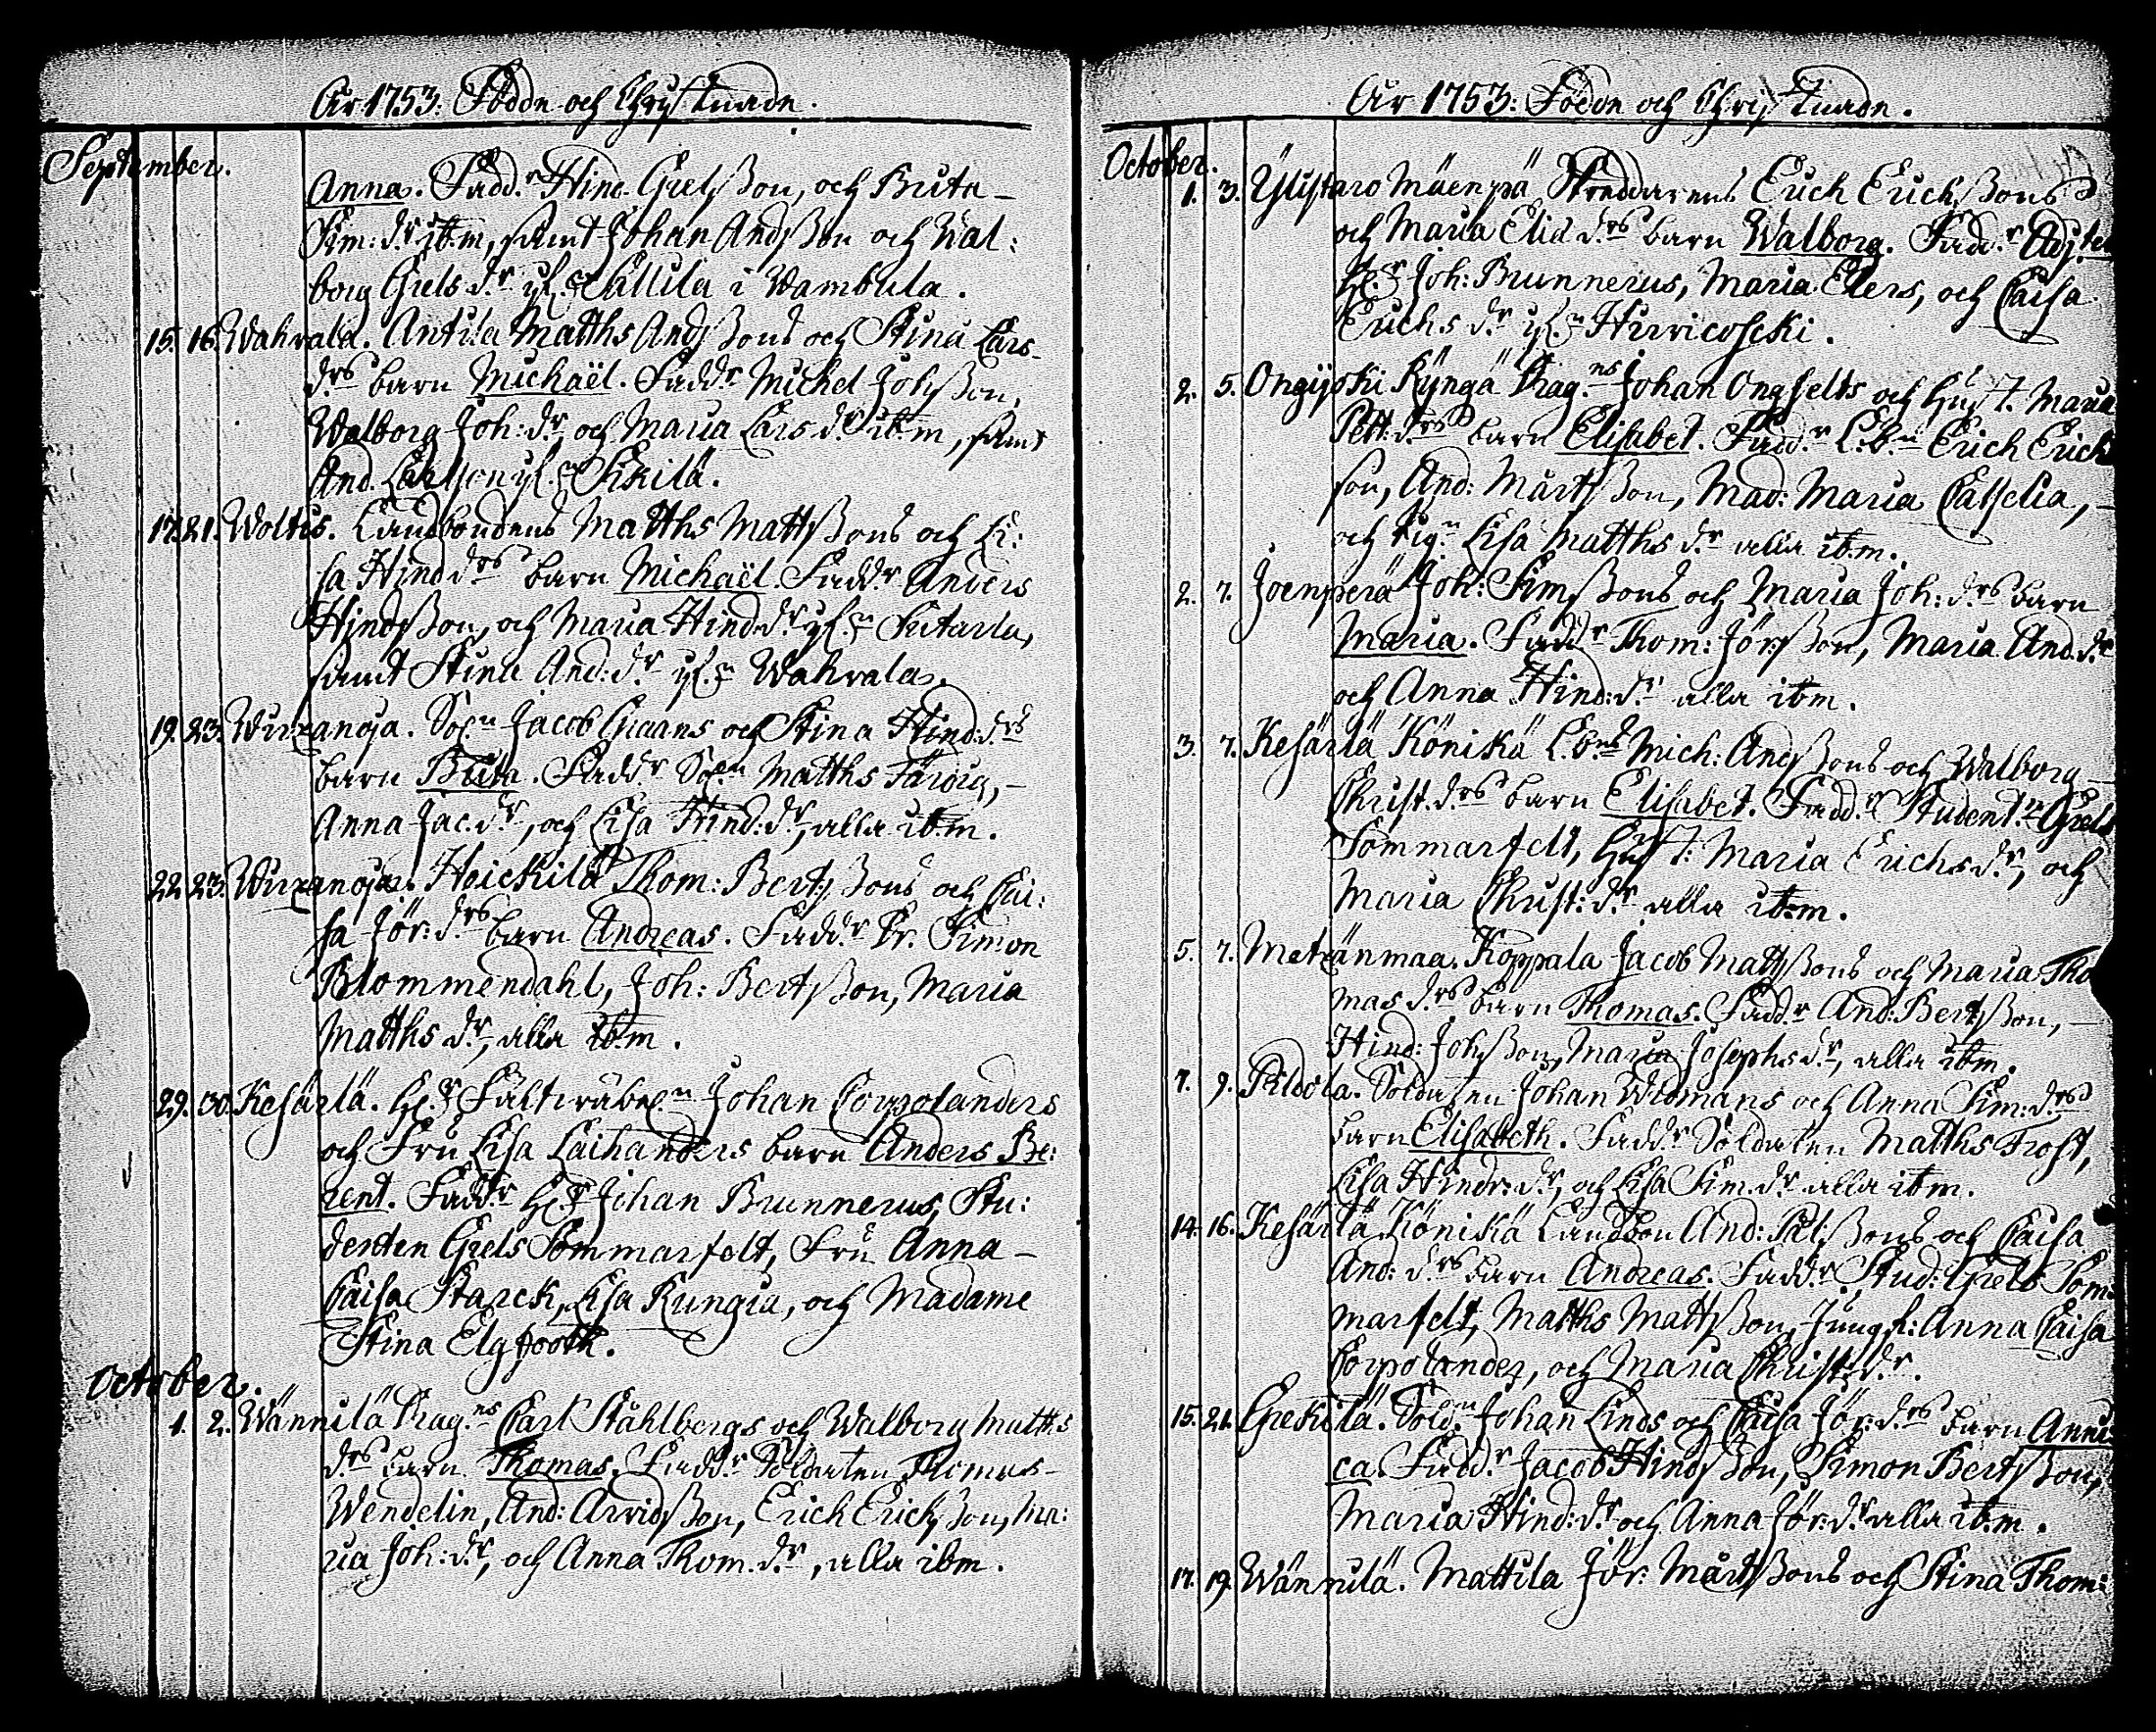 År 1753: Födde och Christnade.
September.
Anna. Fadd.r Hind. Grelsson, och Brita
Sim: d.r ibm, samt Johan Andsson och Wal:
borg Grels d.r ifr. Callila i Wambula.
15. 16. Wahvala. Anttila Matths Andssons och Stina Lars
d.rs barn Michaël. Fadd.r Michel Johsson,
Walborg Joh: d.r, och Maria Lars d.r ibm, samt
And. Carlson ifr. Sikilä.
17. 21. Woltis. Landbondens Matths Mattssons och Li:
sa Hind d.rs barn Michaël. Fadd.r Anders
Hindsson, och Maria Hind. d.r ifr. Sutarla,
samt Stina And: d.r ifr. Wahvala.
19. 23. Wirzanoja. Sol.n Jacob Graans och Stina Hind: d.rs
barn Brita. Fadd.r Matths Färdig,
Anna Jac. d.r, och Lisa Hind: d.r, alla ibm.
22. 23. Wirzanoja. Heickilä Thom: Bertssons och Cai:
sa Jör: d.rs barn Andreas. Fadd.r Simon
Blommendahl, Joh: Bertsson, Maria
Matths d.r, alla ibm.
29. 30. Kesärlä. H.r Fältväbel.n Johan Corpolanders
och Fru Lisa Laihanders barn Anders Be:
rent. Fadd.r H.r Johan Brunnerus, Stu:
denten Grels Sommarfelt, Fru Anna
Caisa Starck, Lisa Rungia, och Madame
Stina Elgfooth.
October.
1. 2. Wännilä Drag.ns Carl Ståhlbergs och Walborg Matths
d.rs barn Thomas. Fadd.r Soldaten Thomas
Wendelin, And: Arvidsson, Erich Ericksson, Ma:
ria Joh: d.r, och Anna Thom. d.r, alla ibm.
År 1753: Födde och Christnade.
October.
1. 3. Ylistaro Mäenpä Skreddarens Erich Erichssons
och Maria Elid d.rs barn Walborg. Fadd.r
H.r Joh: Brunnerus, Maria Elers, och Caisa
Erichs d.r ifr. Hirvicoscki.
2. 5. Ongijoki Kyngä Drag.ns Johan Ongfelts och Hust. Maria
Pett: d.rs barn Elisabet. Fadd.r L.b.n Erich Erich
son, And: Mårtsson, Mad: Maria Catselia,
och Pig.n Lisa Matths d.r alla ibm.
2. 7. Joenperä Joh: Simssons och Maria Joh: d.rs barn
Maria. Fadd.r Thom: Jörsson, Maria And. d.r
och Anna Hind: d.r alla ibm.
3. 7. Kesärlä Könikä L.b.ns Mich: Andssons och Walborg
Christ. d.rs barn Elisabet. Fadd.r Student.n Grels
Sommarfelt, Hust: Maria Erichs d.r, och
Maria Christ: d.r alla ibm.
5. 7. Metzänmaa. Koppala Jacob Mattssons och Maria Tho
mas d.rs barn Thomas. Fadd.r And: Bertsson,
Hind: Johsson, Maria Josephs d.r, alla ibm.
7. 9. Soldaten Johan Widmans och Anna Sim: d.rs
barn Elisabeth. Fadd.r Soldaten Matths Frost,
Lisa Hindr: d.r, och Lisa Sim. d.r alla ibm.
14. 16. Kesärlä Könikä Landbon And: Palssons och Caisa
And: d.rs barn Andreas. Fadd.r Stud: Grels Som
marfelt, Matths Mattsson, Jungfr: Anna Caisa
Corpolander, och Maria Christ: d.r.
15. 21. Grekilä. Sold.n Johan Linds och Caisa Jör: d.rs barn Anni
ca. Fadd.r Jacob Hindsson, Simon Bertsson,
Maria Hind: d.r och Anna Jör: d.r alla ibm.
17. 19. Wännilä. Mattila Jör: Mårtssons och Stina Thom: